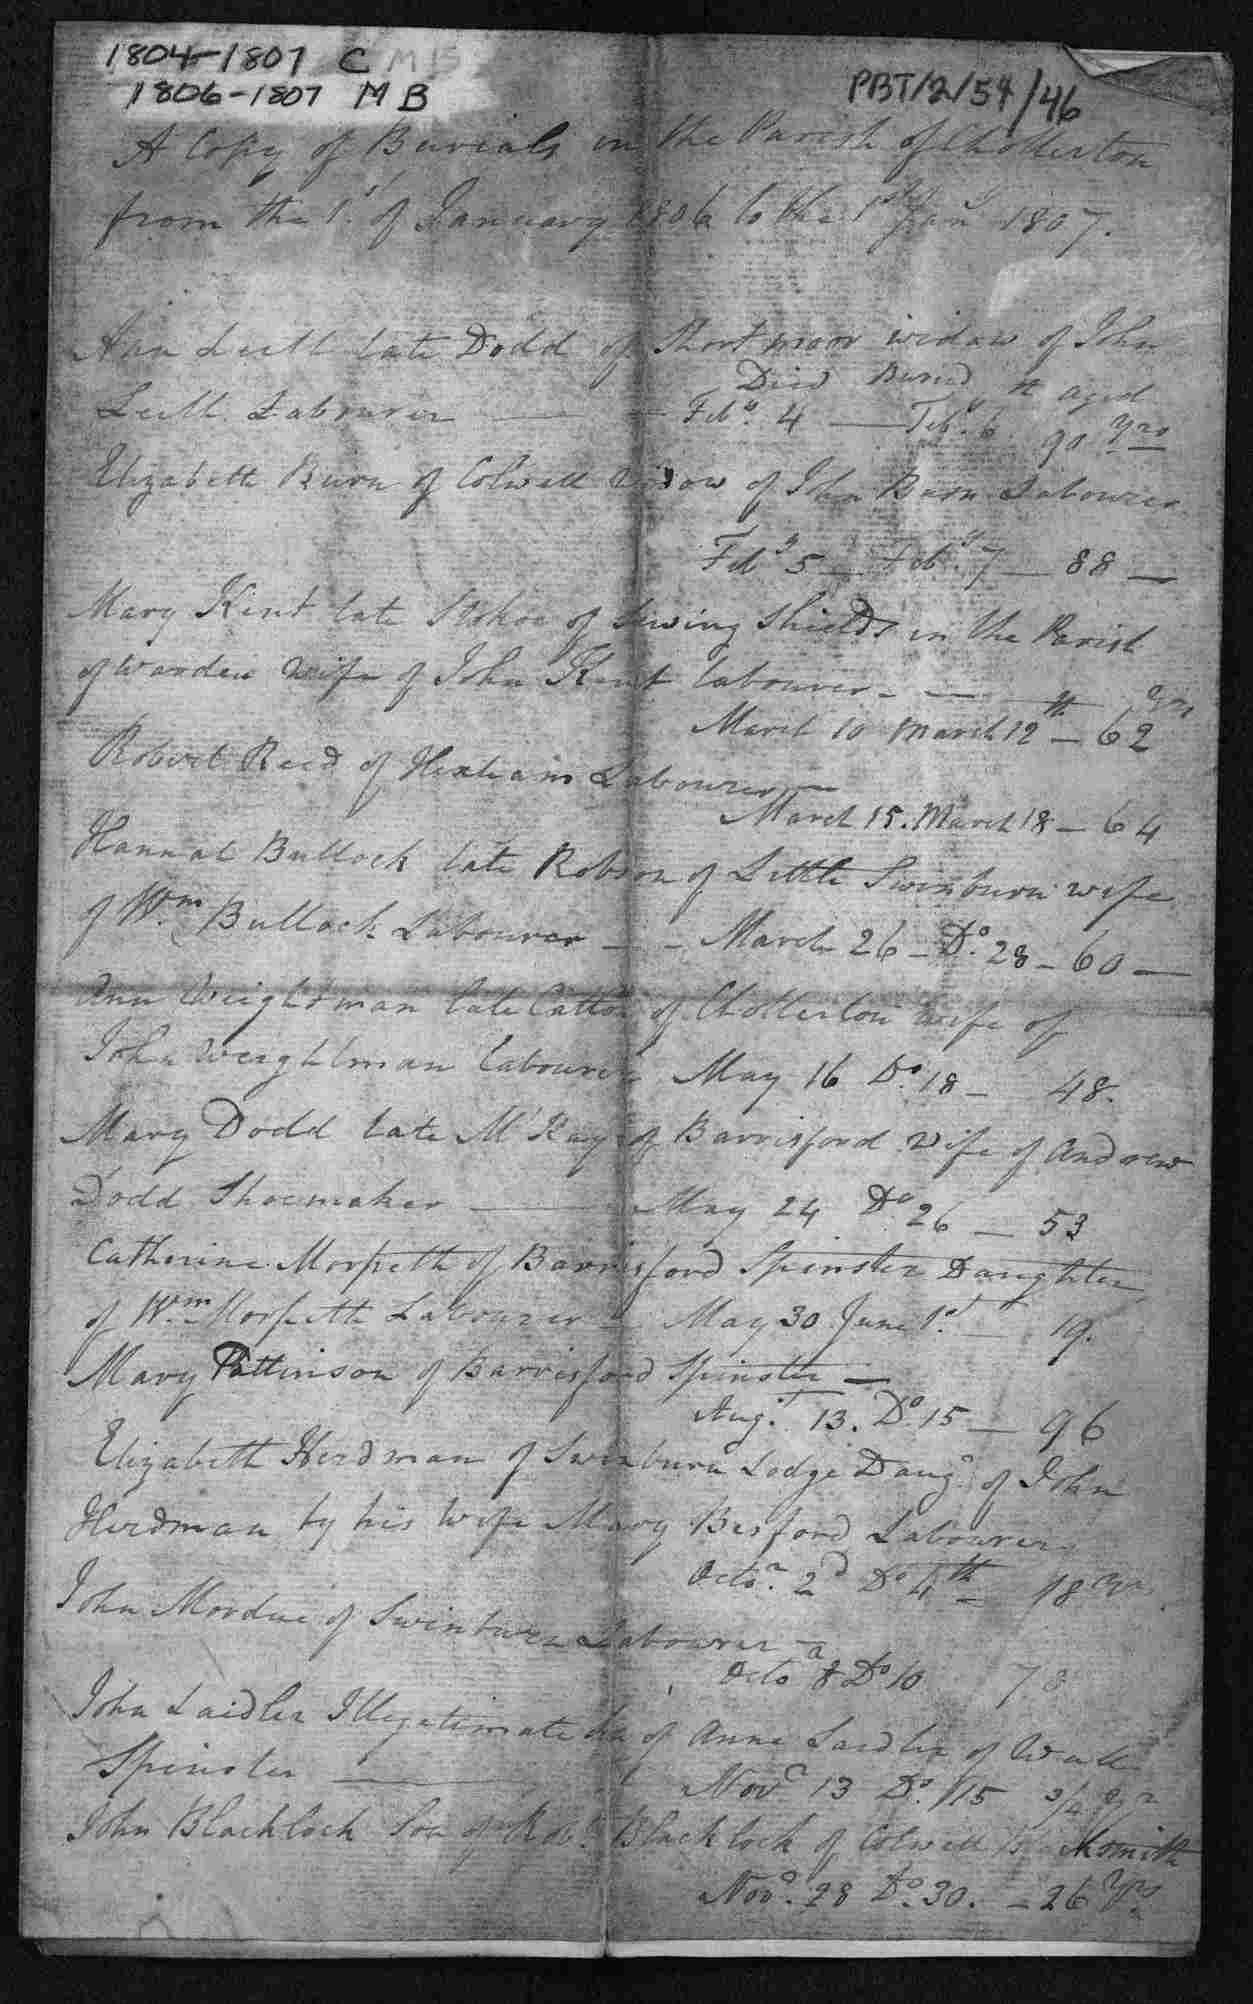 1804-1807 C M 15
1806-1807 M B
PBT/2/54/46
A Copy of Burials in the Parish of Chollerton
from the 1st of January 1806 to the 1st Jany 1807.
Ann Leitl late Dodd of Short moor widow of John
Died Buried aged
Leitl Labourer — Feby. 4 — Feby. 6th 90 yrs
Elizabeth Burn of Colwell Widow of John Burn Labourer
Feby 5 — Feby. 7 — 88 —
Mary Kent late Stokoe of Sewing Shields in the Parish
of Warden wife of John Kent labourer - — yrs
March 10 March 12th — 62
Robert Reed of Hexham Labourer —
March 15. March 18 — 64
Hannah Bullock late Robson of Little Swinburn wife
of Wm. Bullock Labourer — - March 26 — Do. 28 - 60 —
Ann Weightman late Catton of Chollerton wife of
John Weightman Labourer May 16 Do. 18 — 48.
Mary Dodd late McKay of Barrisford Wife of Andrew
Dodd Shoemaker — May 24 Do 26 — 53
Catherine Morpeth of Barrisford Spinster Daughter
of Wm. Morpeth Labourer — May 30 June 1st — 19.
Mary Pattinson of Barrisford Spinster —
Augt. 13. Do 15 — 96
Elizabeth Herdman of Swinburn Lodge Daugr. of John
Herdman by his wife Mary Besford Labourer
Octor. 2d Do 4th — 18 yrs.
John Mordue of Swinburn Labourer —
Octor 8 Do 10 73
John Laidler Illegitimate Son of Anne Laidler of Wall
Spinster — Novr 13 Do. 15 3/4 yr
John Blacklock Son of Robt. Blacklock of Colwell Bl ksmith
Novr. 28 Do. 30. — 26 yrs.